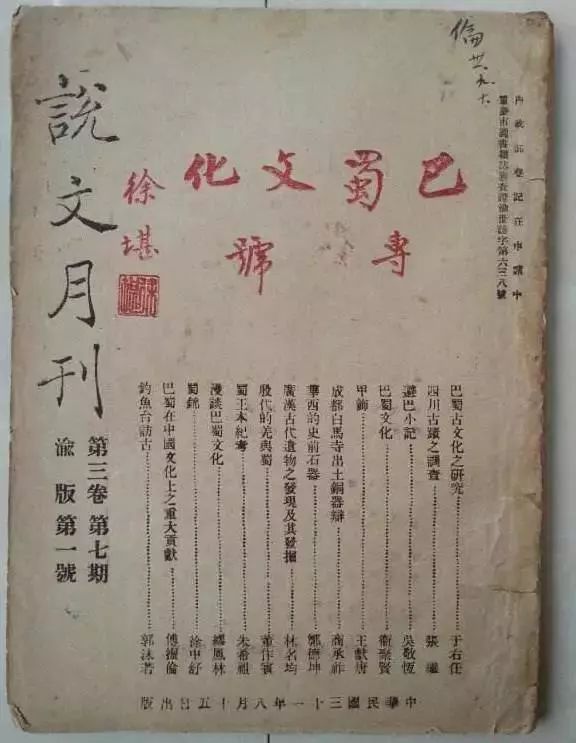 倫 卅一、九、十
內政部登記在申請中
重慶市圖書雜誌審查證渝世誌字第六三八號
巴蜀文化
專號
徐堪
說文月刊
第三卷第七期
渝版第一號
巴蜀古文化之研究⋯⋯于右任
四川古蹟之調查⋯⋯張繼
避巴小記⋯⋯吳敬恆
巴蜀文化⋯⋯衞聚賢
甲飾⋯⋯王獻唐
成都白馬寺出土銅器辯⋯⋯商承祚
華西的史前石器⋯⋯鄭德坤
廣漢古代遺物之發現及其發掘⋯⋯林名均
殷代的羌與蜀⋯⋯董作賓
蜀王本紀考⋯⋯朱希祖
漫談巴蜀文化⋯⋯繆鳳林
蜀錦⋯⋯徐中舒
巴蜀在中國文化上之重大貢獻⋯⋯傅振倫
釣魚台訪古⋯⋯郭沫若
中華民國三十一年八月十五日出版